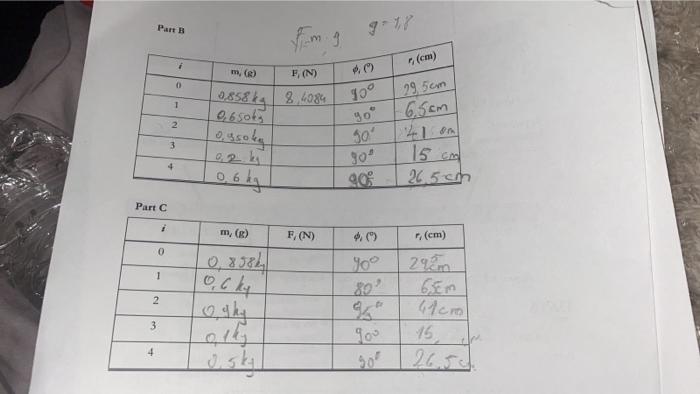 Part B
F=m·g g=9,8
i m, (g) F, (N) ϕ, (°) r, (cm)
0 0,858kg 8,4084 90° 29,5cm
1 0,650kg 90° 6,5cm
2 0,350kg 90° 41 cm
3 0,2 kg 90° 15 cm
4 0,6 kg 90° 26,5cm
Part C
i m, (g) F, (N) ϕ, (°) r, (cm)
0 0,858kg 90° 29,5cm
1 0,6 kg 80° 6,5cm
2 0,9kg 95° 41cm
3 0,1kg 90° 15
4 0,5kg 90° 26,5c